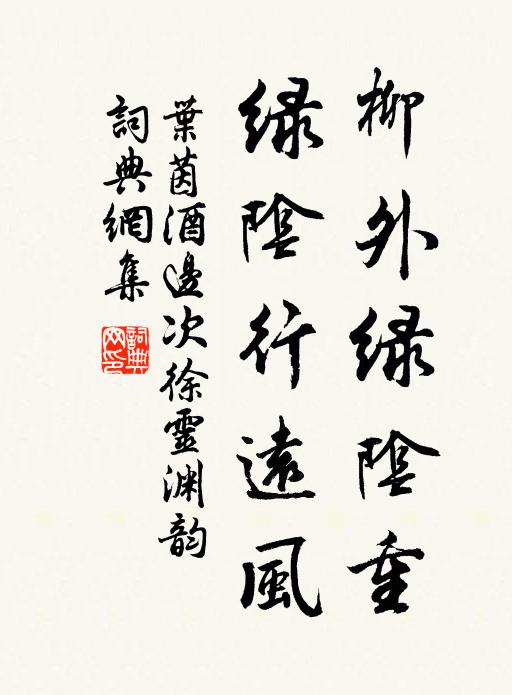 柳外绿陰重
绿陰行遠風
葉茵酒邊次徐靈渊韵
詞典網集
詞典網印